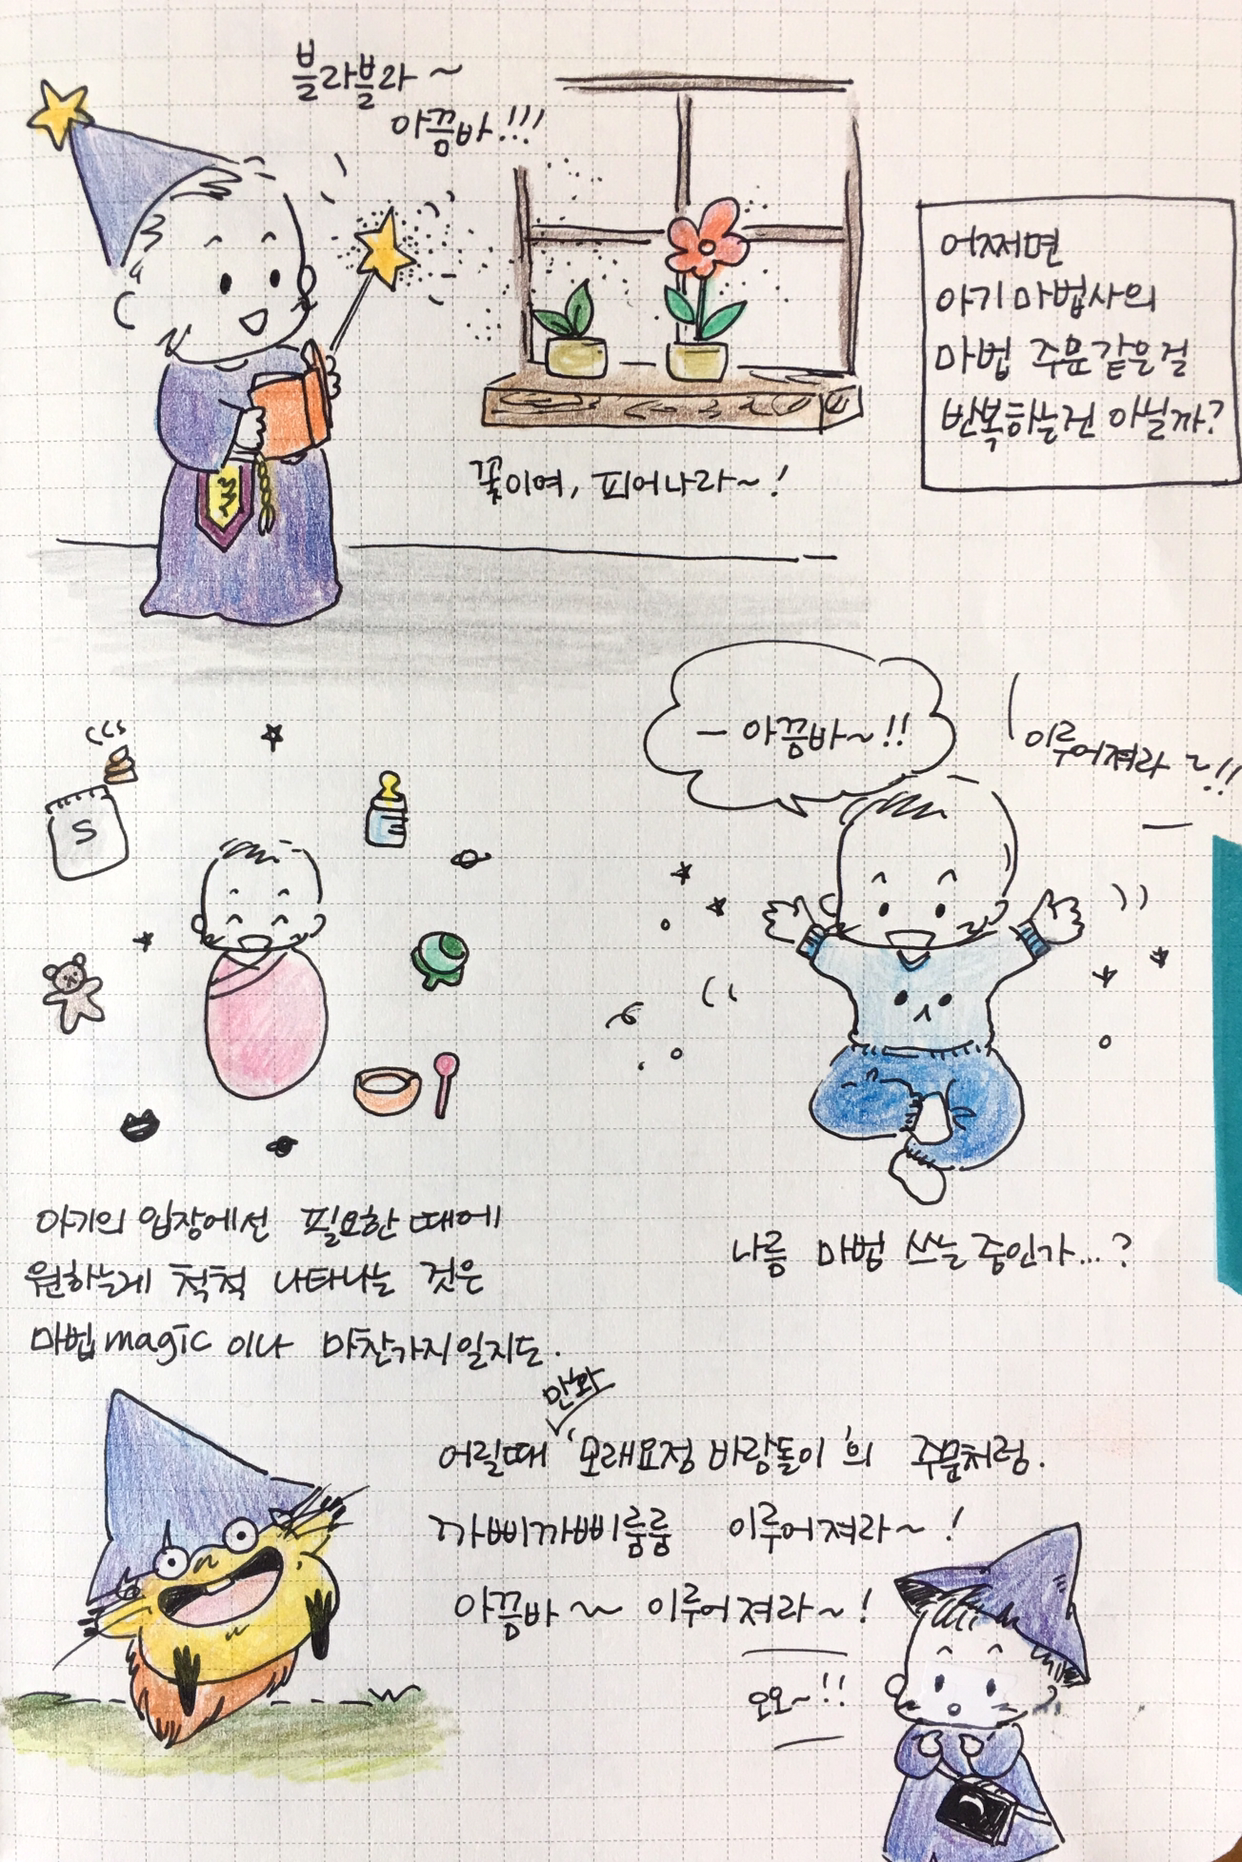 블라블라~
아끔바!!!
어쩌면
아기 마법사의
마법 주문같은걸
반복하는건 아닐까?
꽃이여, 피어나라~!
S
- 아끔바~!!
이루어져라~!!
아기의 입장에선 필요한 때에
원하는게 척척 나타나는 것은
마법magic 이나 마찬가지일지도.
나름 마법 쓰는 중인가...?
만화
어릴때 '모래요정 바람돌이'의 주문처럼.
까삐까삐룸룸 이루어져라~!
아끔바~ 이루어져라~!
오오~!!